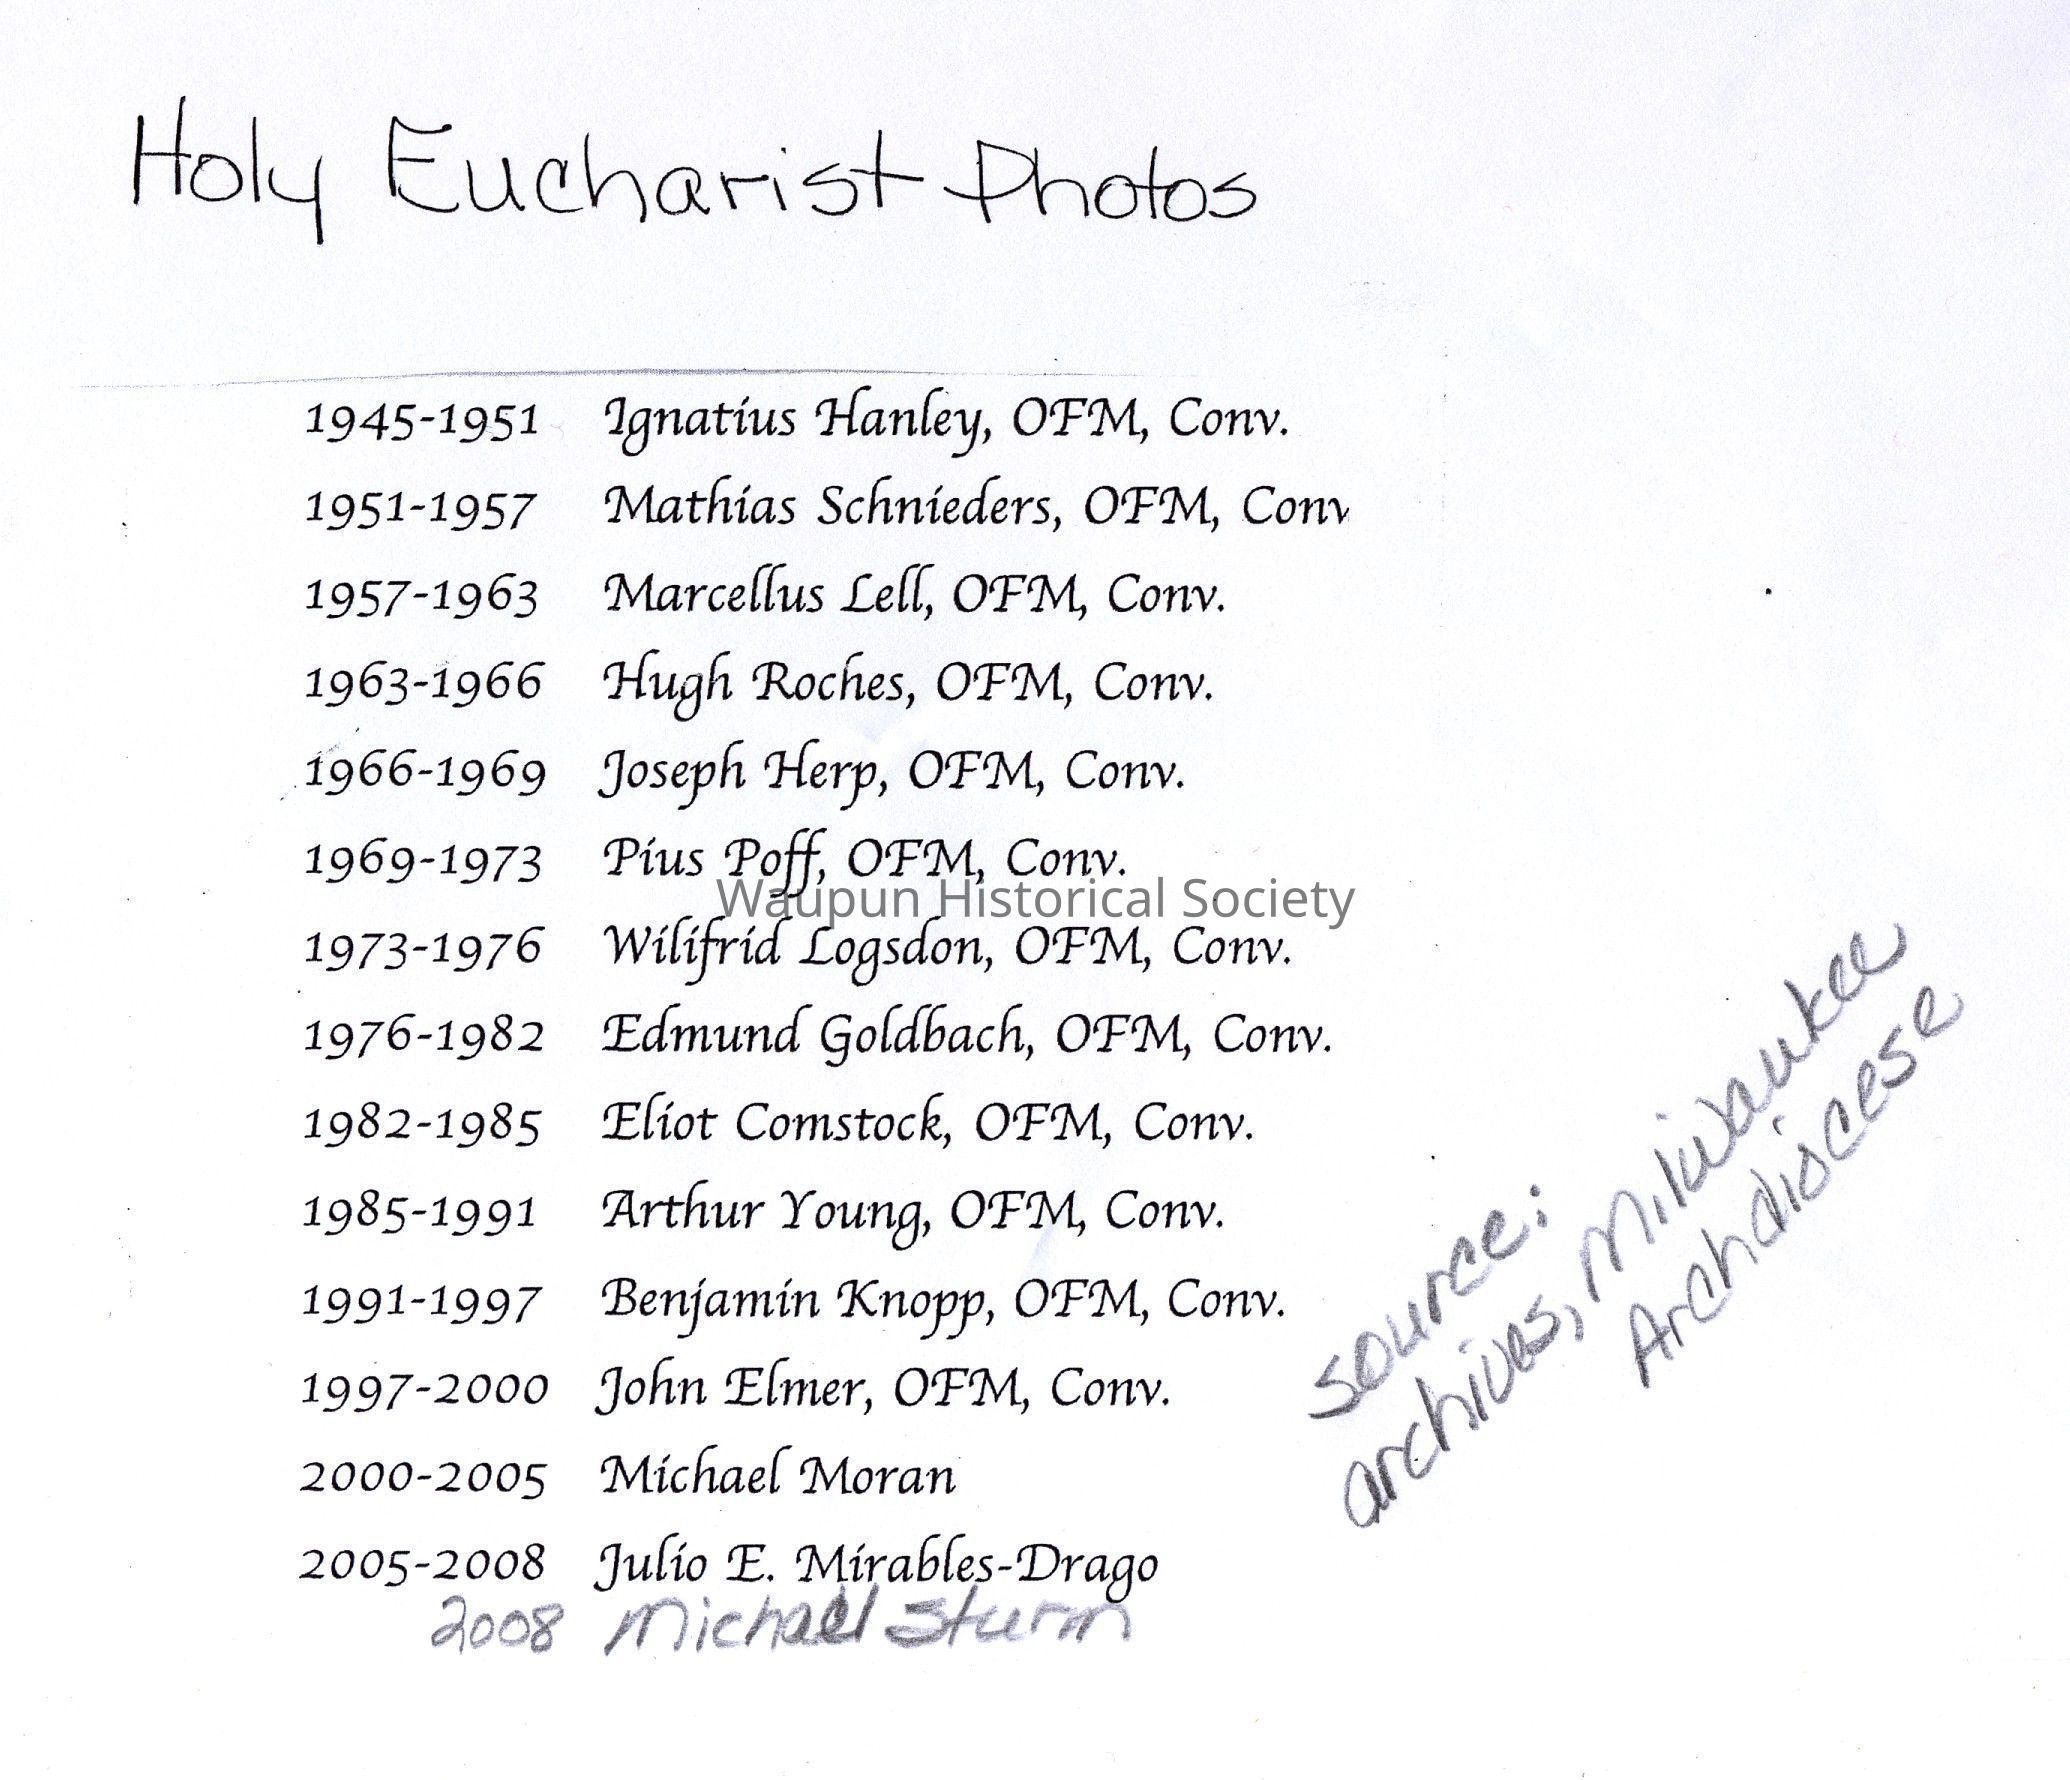 Holy Eucharist Photos
1945-1951 Ignatius Hanley, OFM, Conv.
1951-1957 Mathias Schnieders, OFM, Conv
1957-1963 Marcellus Lell, OFM, Conv.
1963-1966 Hugh Roches, OFM, Conv.
1966-1969 Joseph Herp, OFM, Conv.
1969-1973 Pius Poff, OFM, Conv.
Waupun Historical Society
1973-1976 Wilifrid Logsdon, OFM, Conv.
1976-1982 Edmund Goldbach, OFM, Conv.
1982-1985 Eliot Comstock, OFM, Conv.
1985-1991 Arthur Young, OFM, Conv.
1991-1997 Benjamin Knopp, OFM, Conv.
1997-2000 John Elmer, OFM, Conv.
2000-2005 Michael Moran
2005-2008 Julio E. Mirables-Drago
2008 Michael Sturm
source:
archives, Milwaukee
Archdiocese